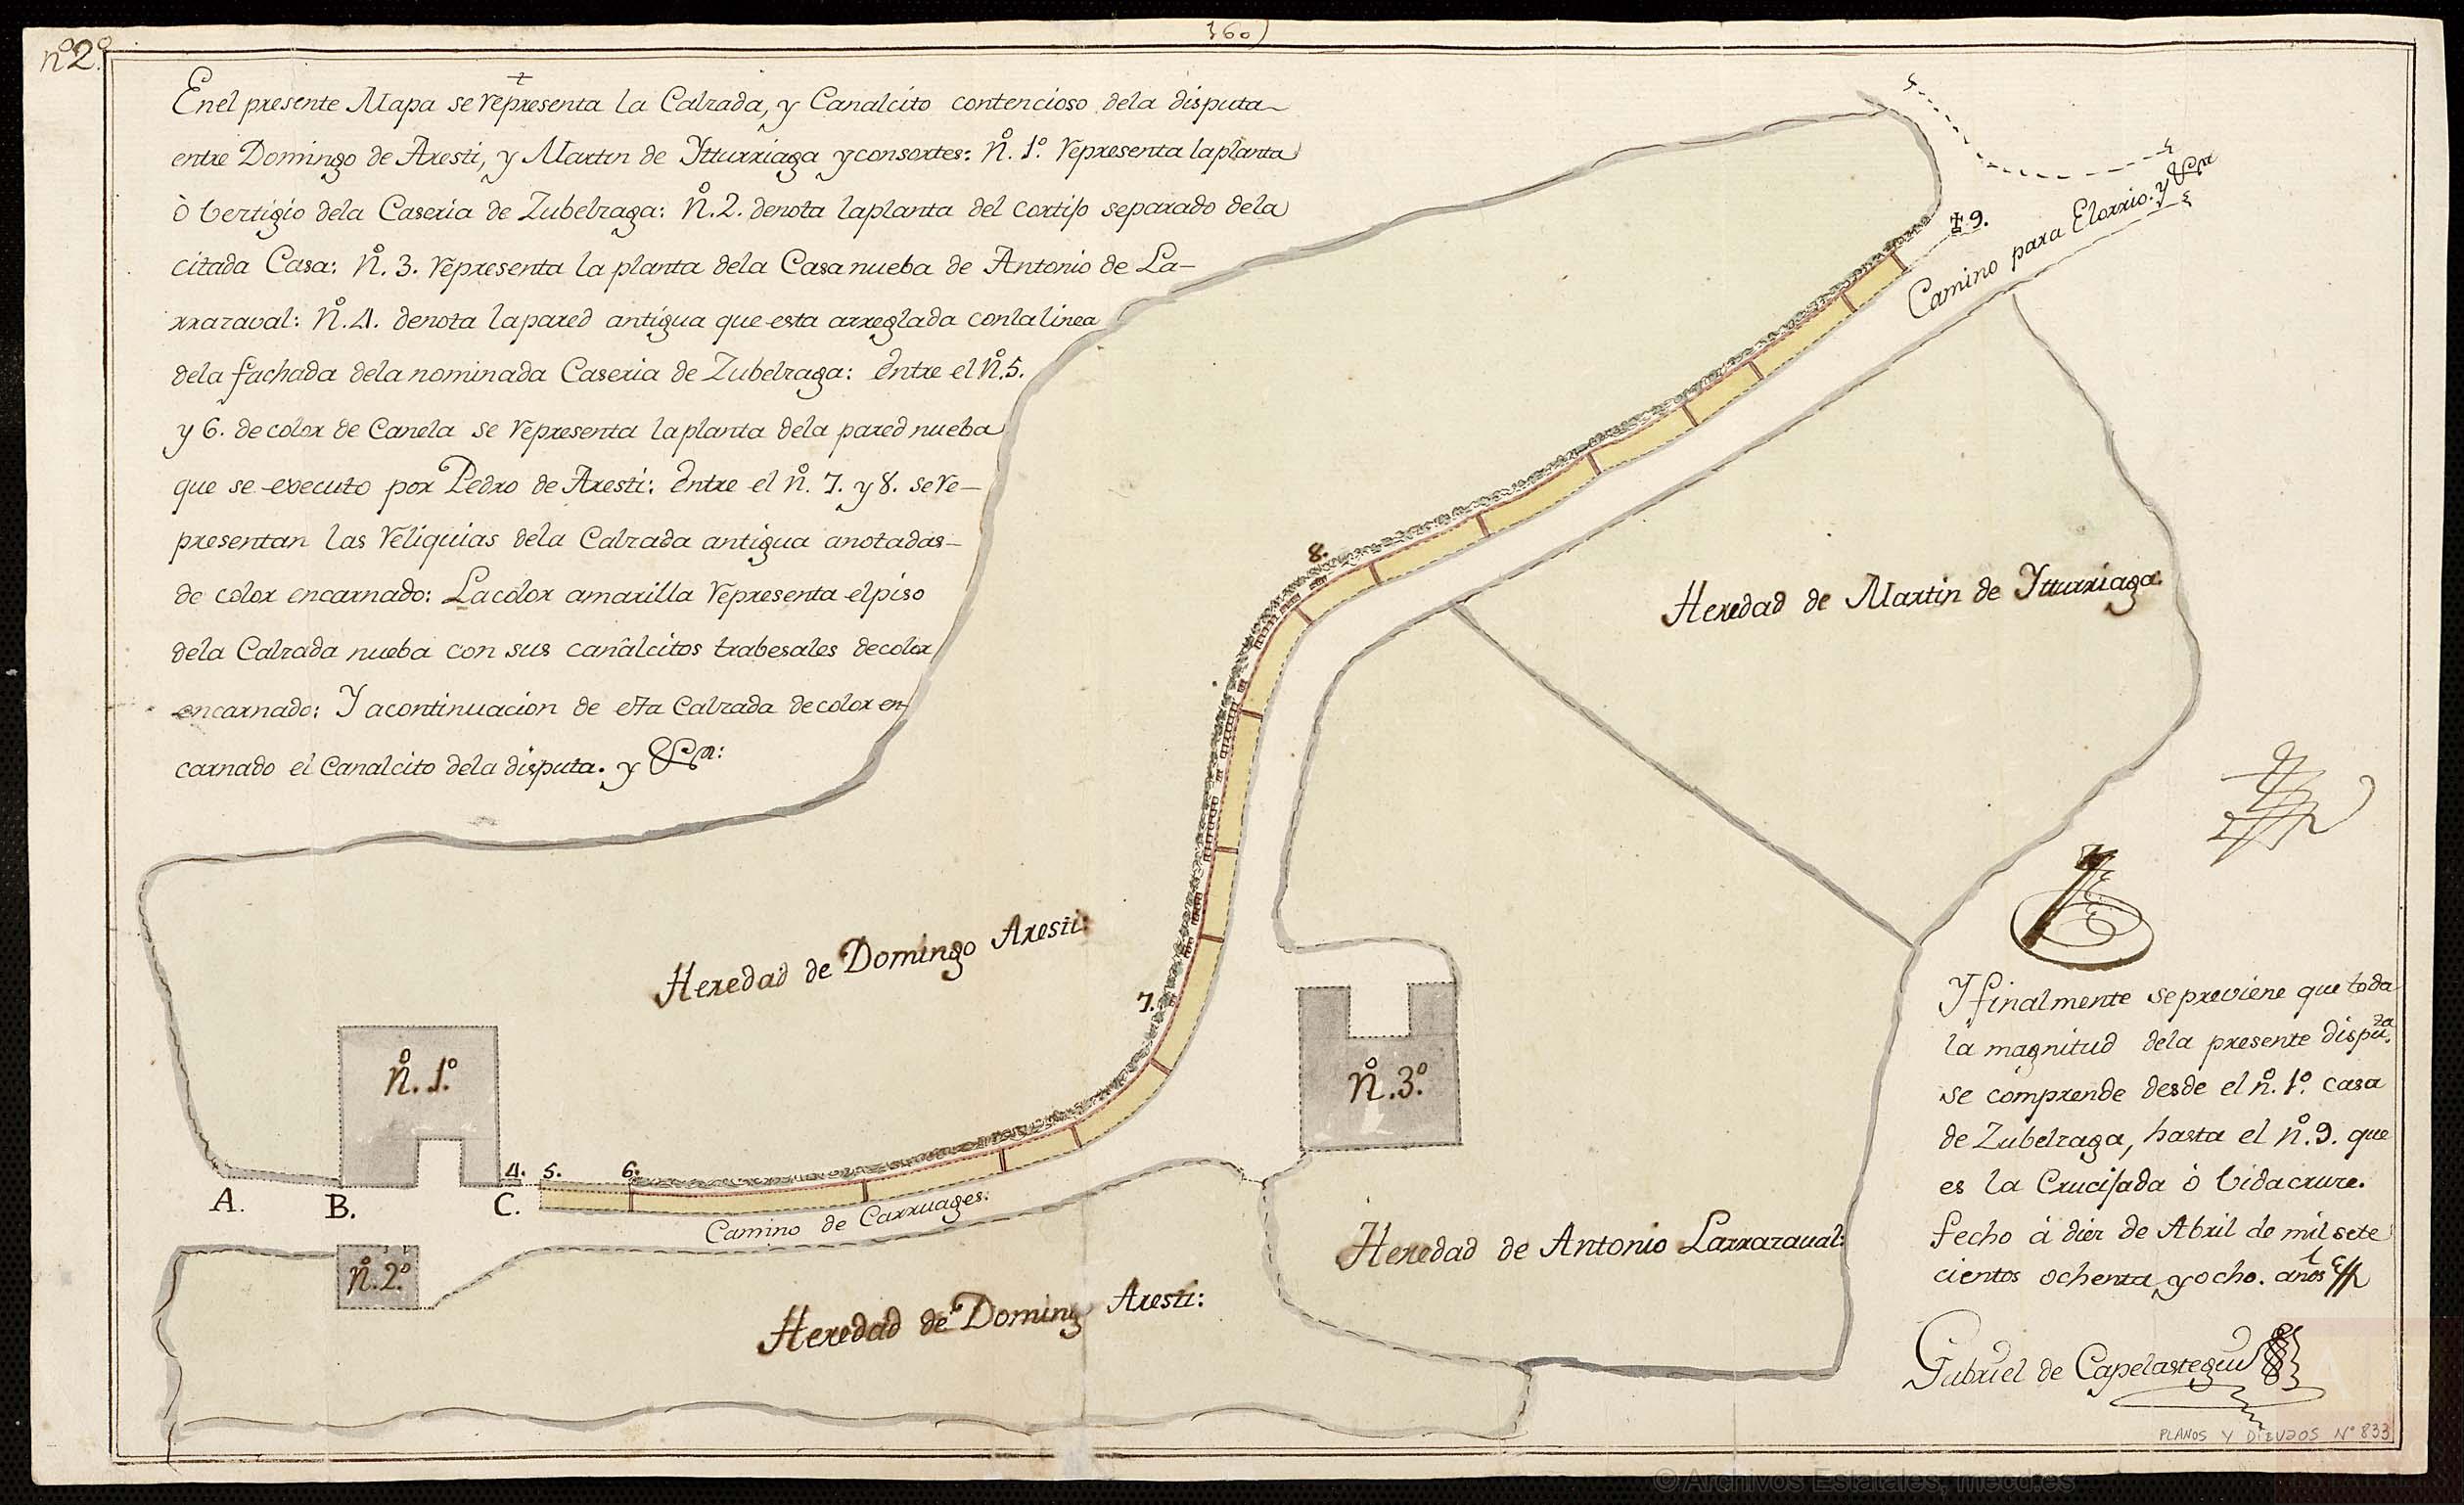 nº2º.
160)
En el presente Mapa se representa la Calzada, y Canalcito contencioso dela disputa
entre Domingo de Aresti, y Martin de Ytturriaga y consortes: Nº. 1º. representa la planta
ò bertigio dela Caseria de Zubelzaga: Nº. 2. denota la planta del cortijo separado dela
citada Casa: Nº. 3. representa la planta dela Casa nueba de Antonio de La-
rrazaval: Nº. 4. denota la pared antigua que esta arreglada con la linea
dela fachada dela nominada Caseria de Zubelzaga: Entre el Nº. 5.
y 6. de color de Canela se representa la planta dela pared nueba
que se executo por Pedro de Aresti: Entre el nº. 7. y 8. se re-
presentan las reliquias dela Calzada antigua anotadas-
de color encarnado: La color amarilla representa el piso
dela Calzada nueba con sus canalcitos trabesales de color
encarnado: Y acontinuacion de esta Calzada de color en-
carnado el Canalcito dela disputa. y &ra:
9.
Camino para Elorrio. y &ra
8.
Heredad de Martin de Ytturriaga.
Heredad de Domingo Aresti:
7.
Nº. 1º.
Nº. 3º.
4. 5. 6.
A. B. C.
Camino de Carruages.
Nº. 2º.
Heredad de Antonio Larrazaval:
Heredad de Doming Aresti:
Y finalmente se previene que toda
la magnitud dela presente disputa.
se comprende desde el nº. 1º. casa
de Zubelzaga, hasta el nº. 9. que
es la Crucijada ò bidacruze.
fecho á diez de Abril de mil sete
cientos ochenta y ocho. años
Gabriel de Capelastegui
PLANOS Y DIBUJOS Nº 833
© Archivos Estatales, mecd.es